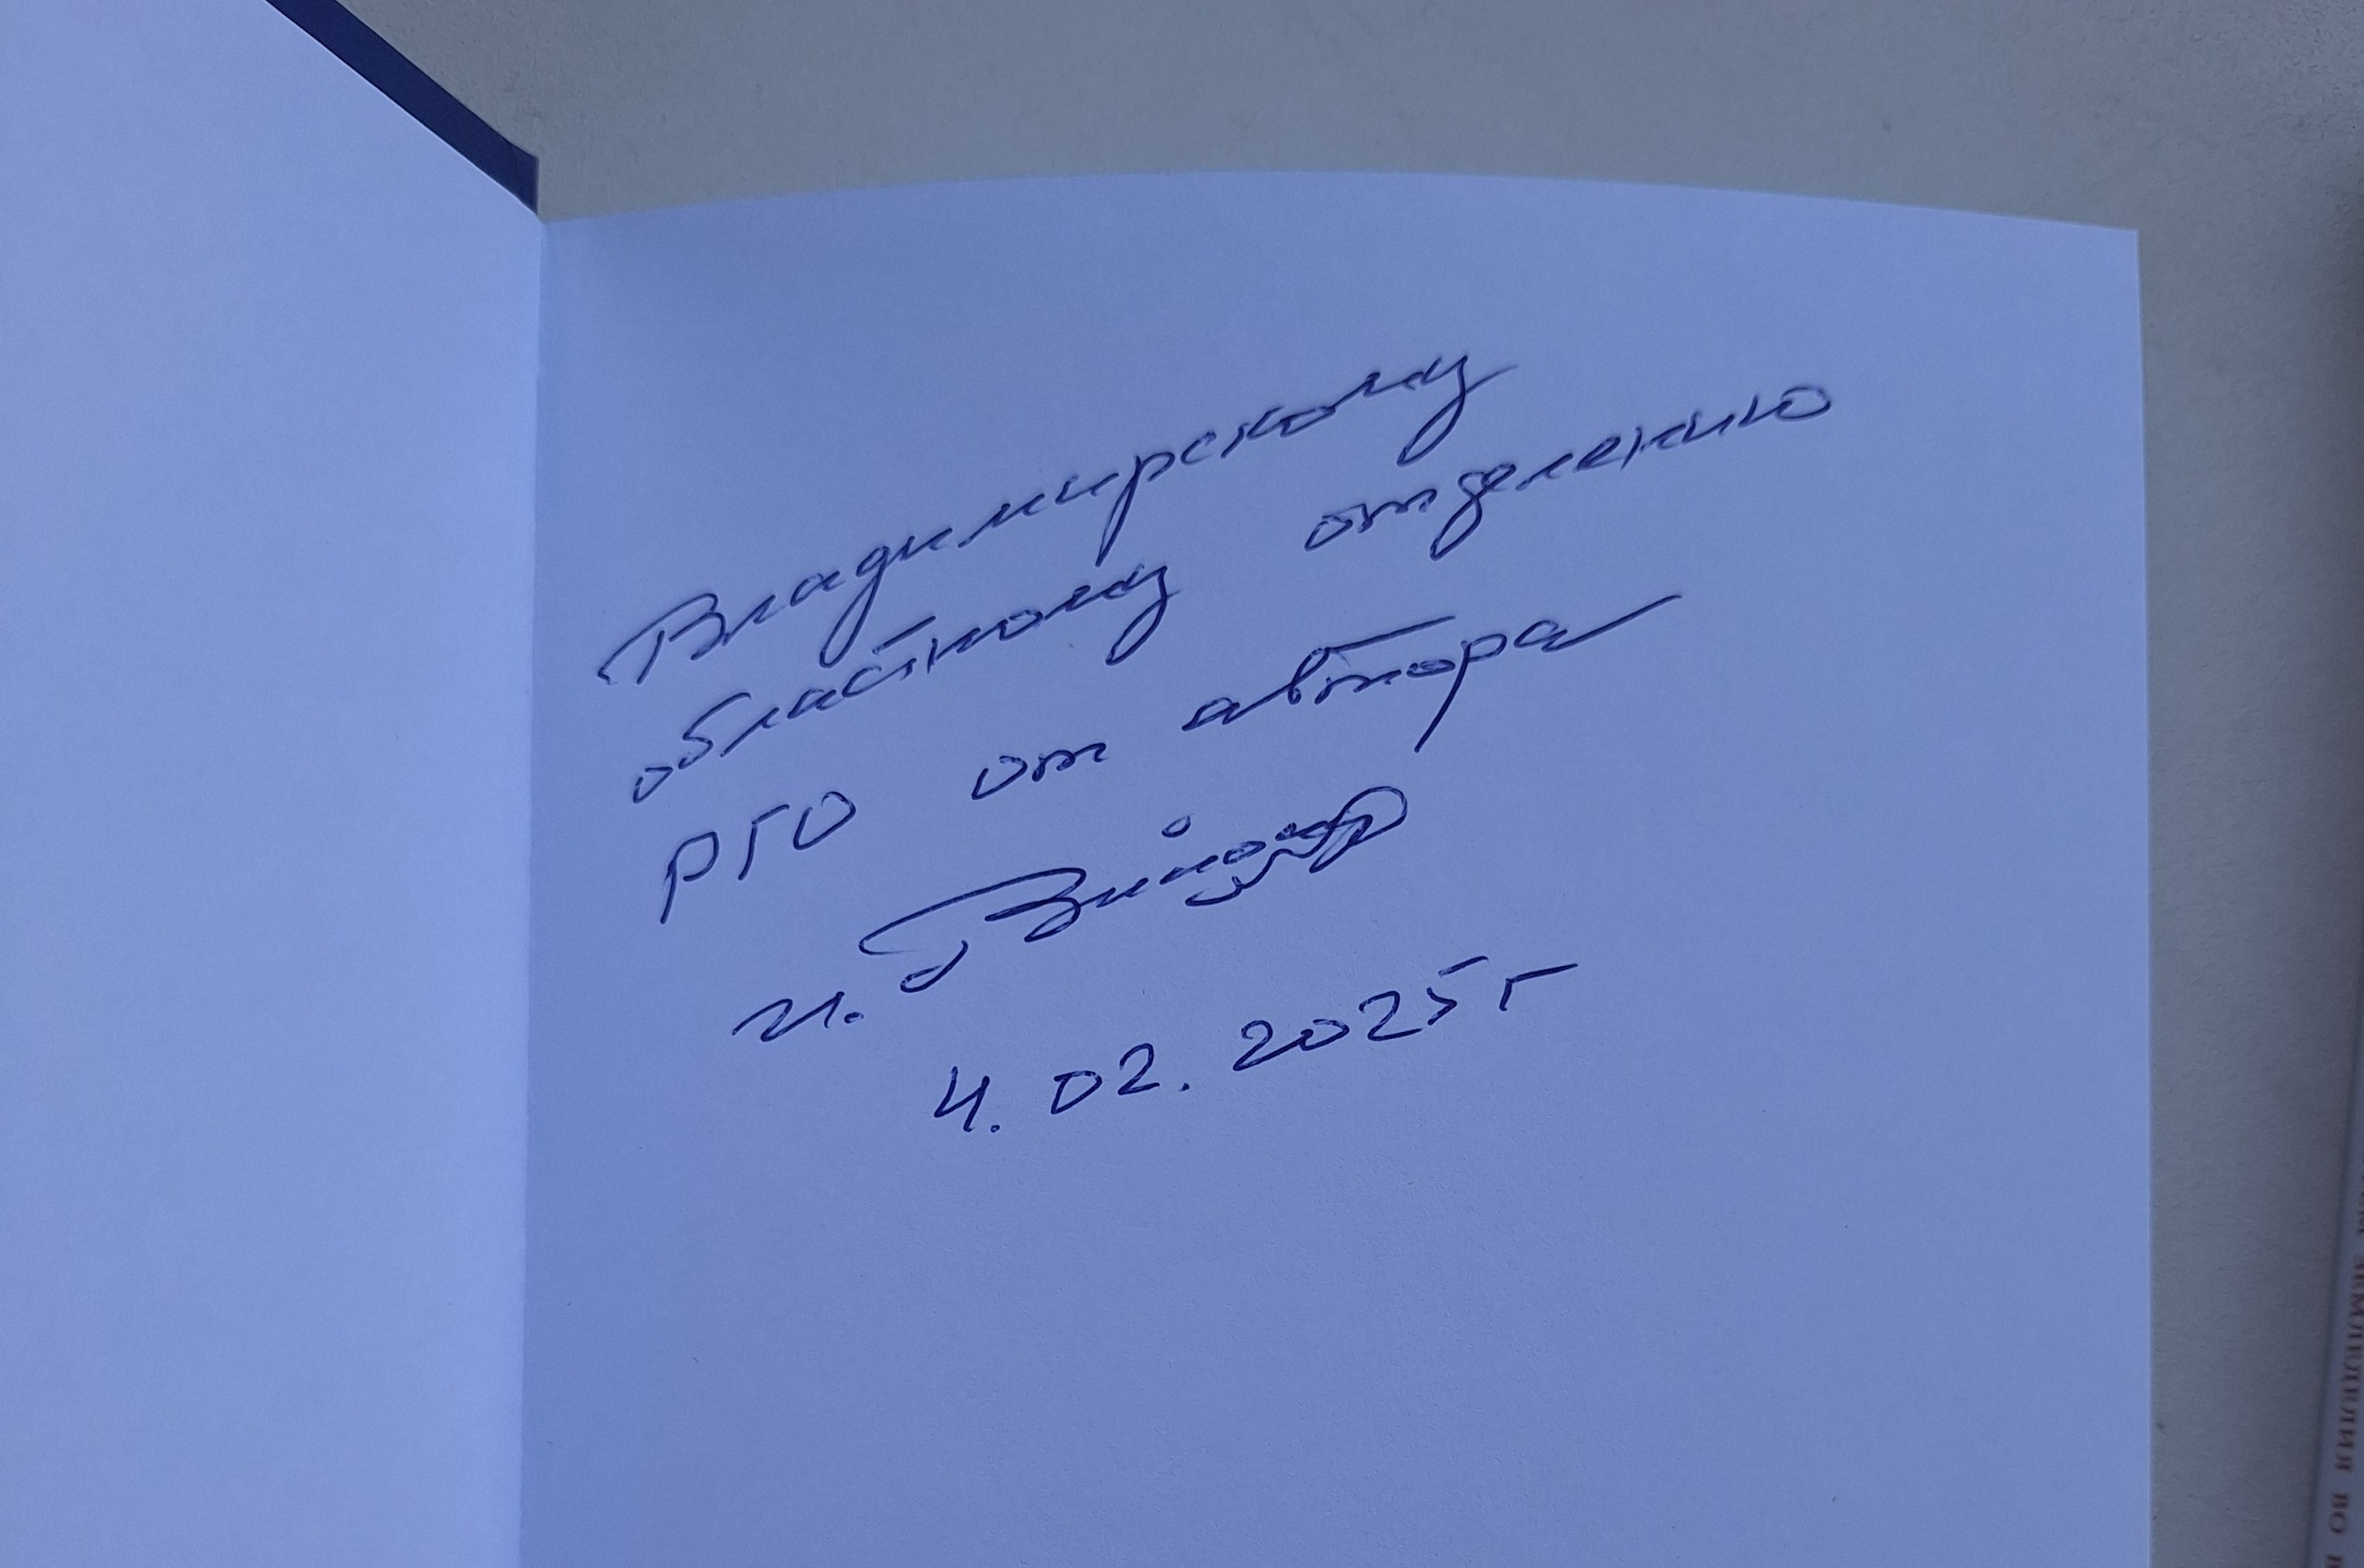 Владимирскому
областному отделению
РГО от автора
4.02.2025г